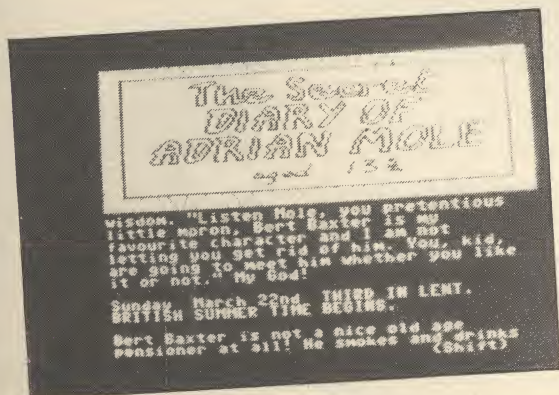 The Secret
DIARY OF
ADRIAN MOLE
aged 13¾
wisdom. "Listen Mole, you pretentious
little moron, Bert Baxter is my
favourite character and I am not
letting you get rid of him. You, kid,
are going to meet him whether you like
it or not." My God!
Sunday March 22nd THIRD IN LENT.
BRITISH SUMMER TIME BEGINS.
Bert Baxter is not a nice old age
pensioner at all! He smokes and drinks
(Shift)